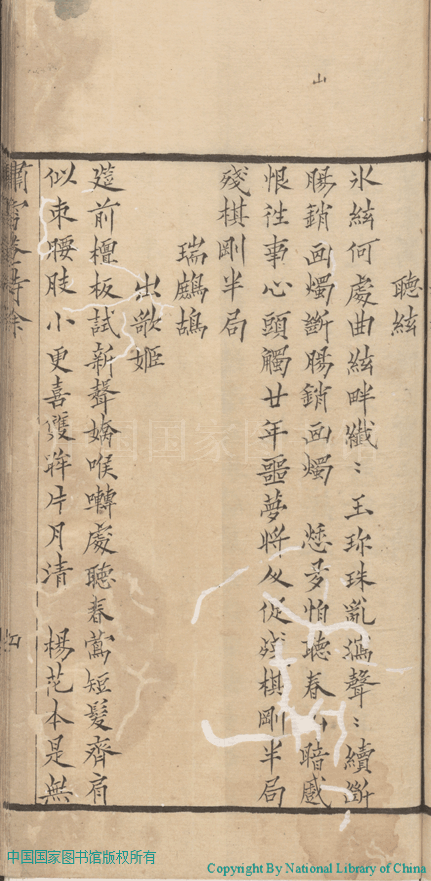 山
聽絃
氷絃何處曲絃畔纖〻玉珎珠亂瀉聲〻續斷
腸銷画燭斷腸銷画燭　愁多怕聽春暗感
恨往事心頭觸廿年噩夢將人促殘棋剛半局
殘棋剛半局
瑞鷓鴣
出歌姬
筵前檀板試新聲嬌喉囀處聽春鶯短髮齊肩
似束腰肢小更喜雙眸片月清　楊花本是無
中国国家图书馆版权所有
Copyright By National Library of China